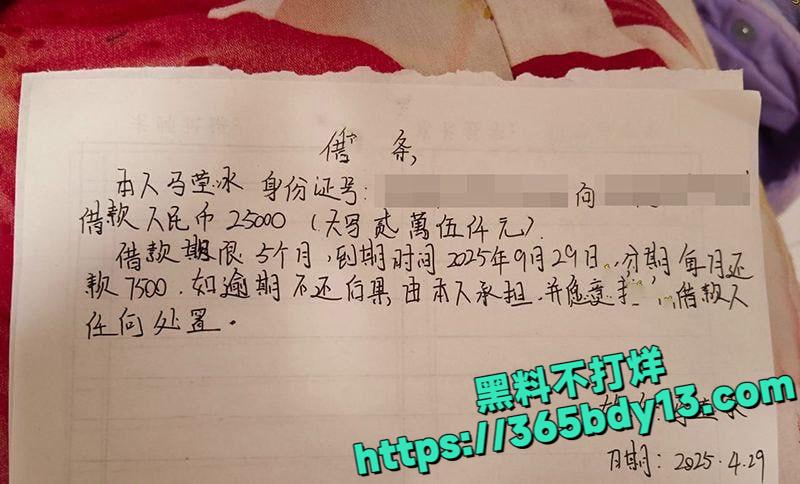 借条
本人马莹冰 身份证号: 向
借款人民币25000(大写贰萬伍仟元)
借款期限5个月,到期时间2025年9月29日,分期每月还
款7500.如逾期不还后果由本人承担.并愿意 借款人
任何处置。
黑料不打烊
https://365bdy13.com
日期:2025.4.29